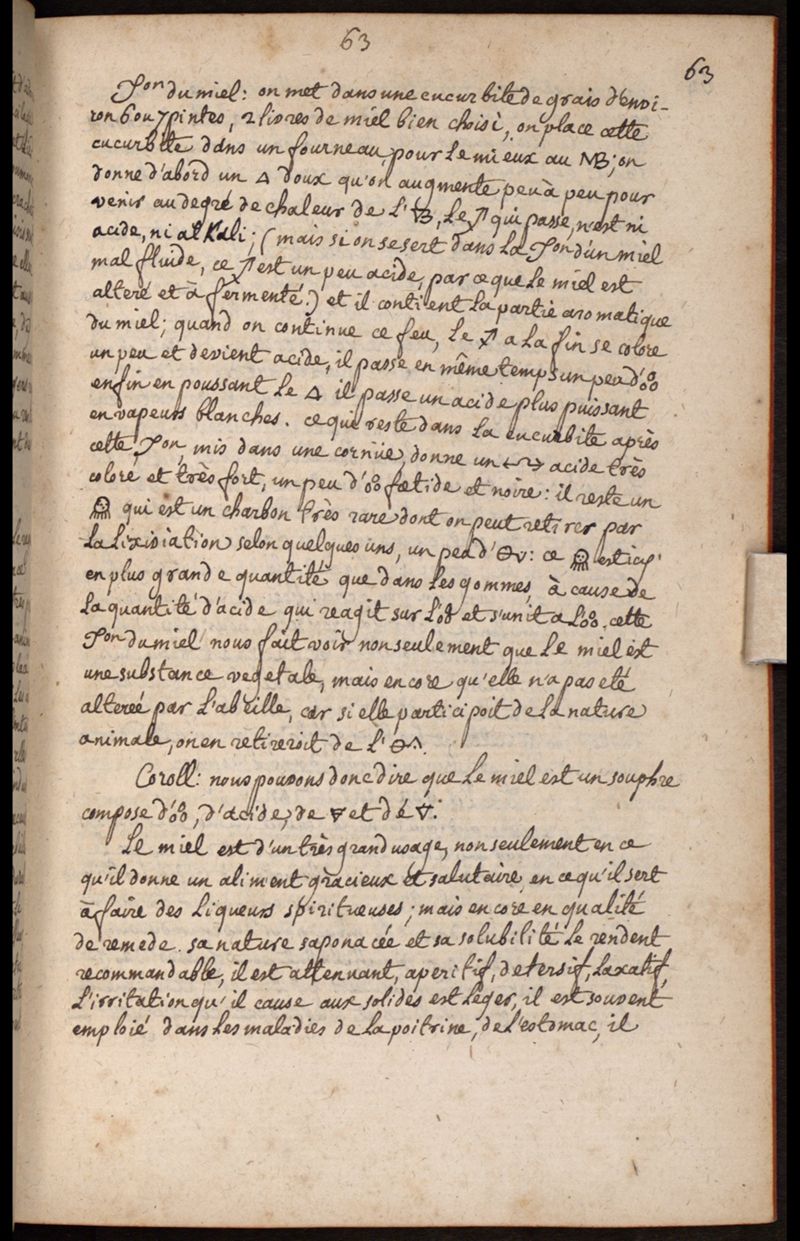 63
63
♐on du miel: on met dans une cucurbite de grais d'envi-
ron 6 ou 7 pintes, 2 livres de miel bien choisi, on place cette
cucurbite dans un fourneau, pour le mieux au MB; on
donne d'abord un 🜂 doux qu'on augmente peu à peu pour
venir au degré de chaleur de l' , le ♐ qui passe, n'est ni
acide, ni alKali; (mais si on se sert dans la ♐on d'un miel
mal fluide, ce ♐ est un peu acide, par ce que le miel est
alteré et à fermenté.) et il contient la partie aromatique
du miel; quand on continue ce feu, le ♐ a la fin se colore
un peu et devient acide, il passe en même temps un peu d'
enfin en poussant le 🜂 il passe un acide plus puissant
en vapeurs blanches. ce qui reste dans la cucurbite après
cette ♐on, mis dans une cornüe, donne un acide très
coloré et très fort, un peu d' fœtide et noire: il reste un
 qui est un charbon très rare dont on peut retirer par
la lixiviation selon quelques uns, un peu d' : ce est icy
en plus grande quantité que dans les gommes, à cause de
la quantité d'acide qui reagit sur l' et s'unit a l' . cette
♐on du miel nous fait voir nonseulement que le miel est
une substance vegetale, mais encore qu'elle n'a pas eté
altereé par l'abeille, car si elle participoit de la nature
animale, on en retireroit de l' .
Coroll: nous pouvons donc dire que le miel est un souphre
compose d' , d'acide, de 🜃 et dé 🜄.
Le miel est d'un très grand usage, nonseulement en ce
qu'il donne un aliment gracieux et salutaire, en ce qu'il sert
à faire des liqueurs spiritueuses; mais encore en qualité
de remede. sa nature saponacée et sa solubilité le rendent
recommandable, il est attenuant, aperitif, detersif, laxatif,
l'irritation qu'il cause aux solides est léger, il est souvent
emploié dans les maladies de la poitrine, de l'estomac, il